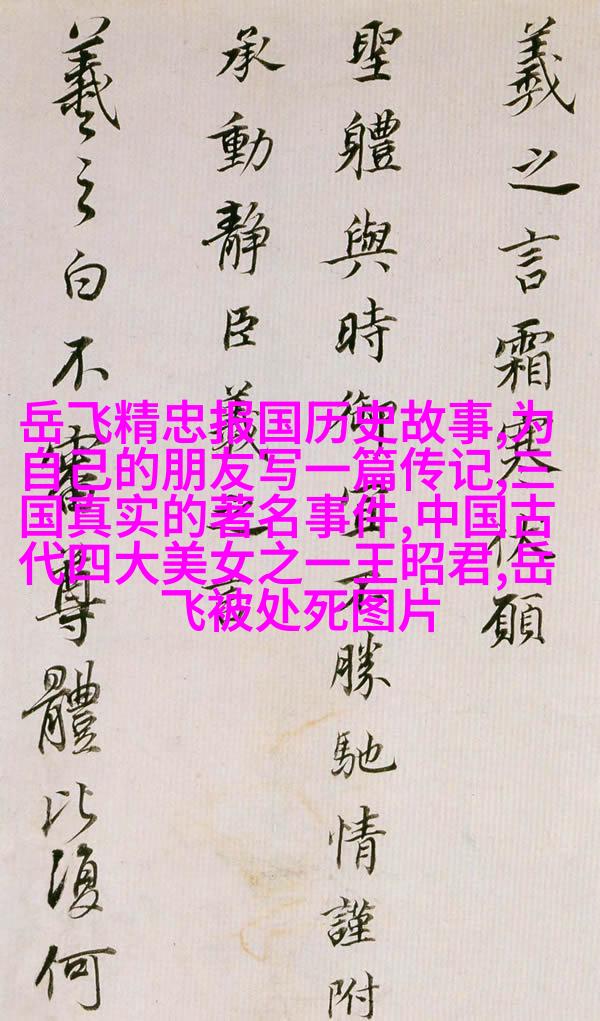 羲之言霜寒伏願
聖體與時御宜不勝馳情謹附
承動靜臣羲之言
羲之白不審尊體比復何
岳飞精忠报国历史故事,为
自己的朋友写一篇传记,三
国真实的著名事件,中国古
代四大美女之一王昭君,岳
飞被处死图片